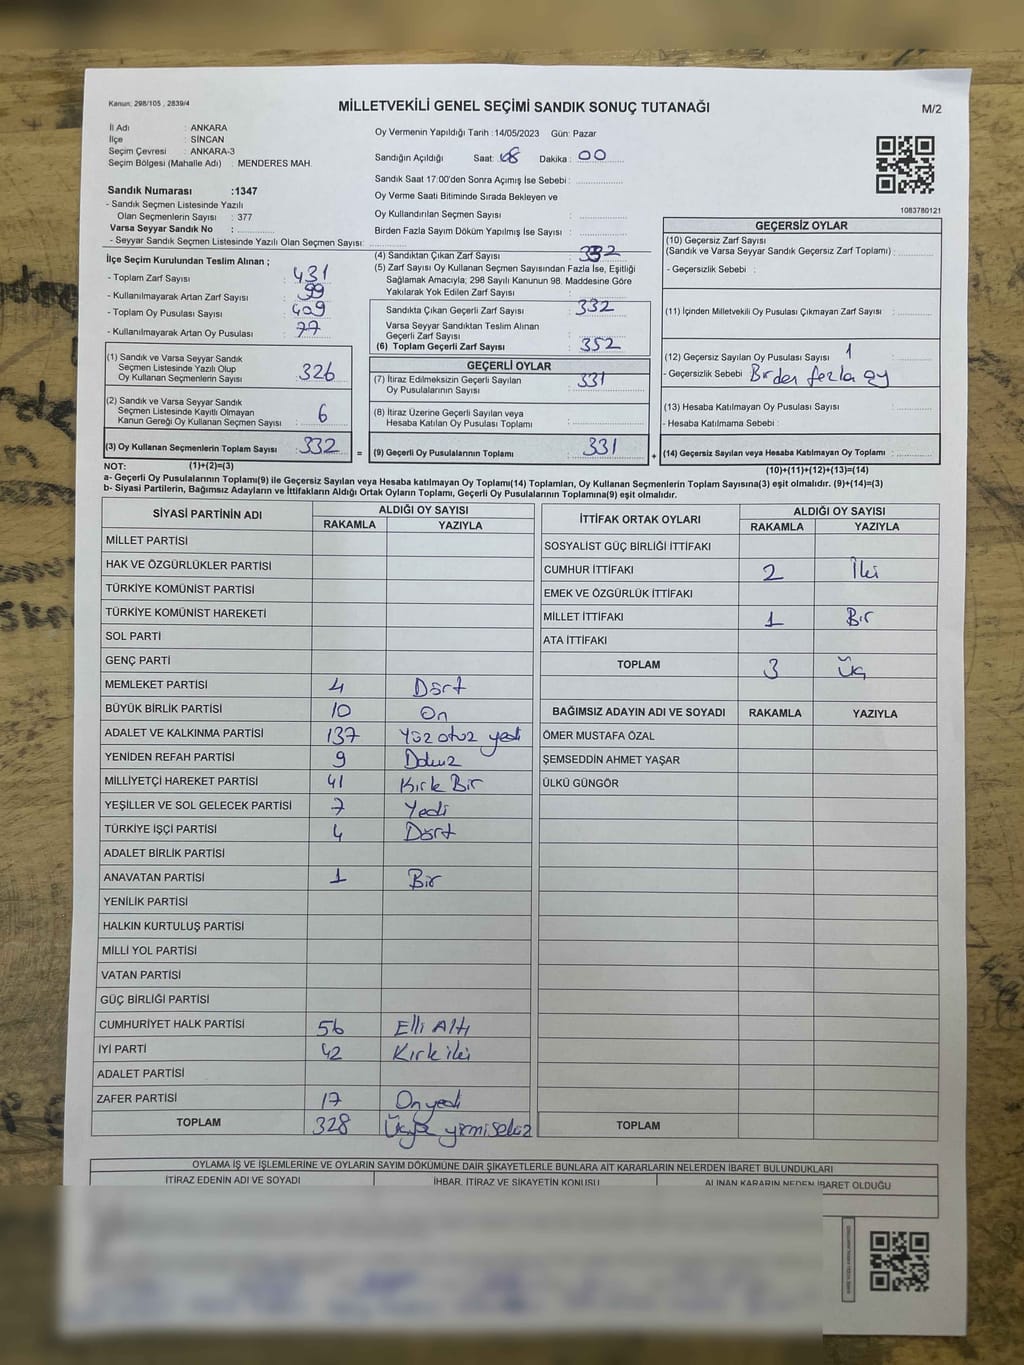 Kanun: 298/105 , 2839/4
MİLLETVEKİLİ GENEL SEÇİMİ SANDIK SONUÇ TUTANAĞI
M/2
İl Adı : ANKARA
İlçe : SİNCAN
Seçim Çevresi : ANKARA-3
Seçim Bölgesi (Mahalle Adı) : MENDERES MAH.
Sandık Numarası :1347
- Sandık Seçmen Listesinde Yazılı
Olan Seçmenlerin Sayısı : 377
Varsa Seyyar Sandık No :
- Seyyar Sandık Seçmen Listesinde Yazılı Olan Seçmen Sayısı:
Oy Vermenin Yapıldığı Tarih :14/05/2023 Gün: Pazar
Sandığın Açıldığı Saat: 08 Dakika : 00
Sandık Saat 17:00'den Sonra Açımış İse Sebebi :
Oy Verme Saati Bitiminde Sırada Bekleyen ve
Oy Kullandırılan Seçmen Sayısı :
Birden Fazla Sayım Döküm Yapılmış İse Sayısı :
1083780121
İlçe Seçim Kurulundan Teslim Alınan ;
- Toplam Zarf Sayısı : 431
- Kullanılmayarak Artan Zarf Sayısı : 99
- Toplam Oy Pusulası Sayısı : 409
- Kullanılmayarak Artan Oy Pusulası : 77
(1) Sandık ve Varsa Seyyar Sandık
Seçmen Listesinde Yazılı Olup
Oy Kullanan Seçmenlerin Sayısı : 326
(2) Sandık ve Varsa Seyyar Sandık
Seçmen Listesinde Kayıtlı Olmayan
Kanun Gereği Oy Kullanan Seçmen Sayısı : 6
(3) Oy Kullanan Seçmenlerin Toplam Sayısı : 332 =
(4) Sandıktan Çıkan Zarf Sayısı : 332
(5) Zarf Sayısı Oy Kullanan Seçmen Sayısından Fazla İse, Eşitliği
Sağlamak Amacıyla; 298 Sayılı Kanunun 98. Maddesine Göre
Yakılarak Yok Edilen Zarf Sayısı :
Sandıkta Çıkan Geçerli Zarf Sayısı : 332
Varsa Seyyar Sandıktan Teslim Alınan
Geçerli Zarf Sayısı :
(6) Toplam Geçerli Zarf Sayısı : 352
GEÇERLİ OYLAR
(7) İtiraz Edilmeksizin Geçerli Sayılan
Oy Pusulalarının Sayısı : 331
(8) İtiraz Üzerine Geçerli Sayılan veya
Hesaba Katılan Oy Pusulası Toplamı :
(9) Geçerli Oy Pusulalarının Toplamı : 331 +
GEÇERSİZ OYLAR
(10) Geçersiz Zarf Sayısı
(Sandık ve Varsa Seyyar Sandık Geçersiz Zarf Toplamı) :
- Geçersizlik Sebebi :
(11) İçinden Milletvekili Oy Pusulası Çıkmayan Zarf Sayısı :
(12) Geçersiz Sayılan Oy Pusulası Sayısı 1 :
- Geçersizlik Sebebi Birden fazla oy
(13) Hesaba Katılmayan Oy Pusulası Sayısı :
- Hesaba Katılmama Sebebi :
(14) Geçersiz Sayılan veya Hesaba Katılmayan Oy Toplamı :
NOT: (1)+(2)=(3)
(10)+(11)+(12)+(13)=(14)
a- Geçerli Oy Pusulalarının Toplamı(9) ile Geçersiz Sayılan veya Hesaba katılmayan Oy Toplamı(14) Toplamları, Oy Kullanan Seçmenlerin Toplam Sayısına(3) eşit olmalıdır. (9)+(14)=(3)
b- Siyasi Partilerin, Bağımsız Adayların ve İttifakların Aldığı Ortak Oyların Toplamı, Geçerli Oy Pusulalarının Toplamına(9) eşit olmalıdır.
SİYASİ PARTİNİN ADI ALDIĞI OY SAYISI
RAKAMLA YAZIYLA
MİLLET PARTİSİ
HAK VE ÖZGÜRLÜKLER PARTİSİ
TÜRKİYE KOMÜNİST PARTİSİ
TÜRKİYE KOMÜNİST HAREKETİ
SOL PARTİ
GENÇ PARTİ
MEMLEKET PARTİSİ 4 Dört
BÜYÜK BİRLİK PARTİSİ 10 On
ADALET VE KALKINMA PARTİSİ 137 Yüz otuz yedi
YENİDEN REFAH PARTİSİ 9 Dokuz
MİLLİYETÇİ HAREKET PARTİSİ 41 Kırk Bir
YEŞİLLER VE SOL GELECEK PARTİSİ 7 Yedi
TÜRKİYE İŞÇİ PARTİSİ 4 Dört
ADALET BİRLİK PARTİSİ
ANAVATAN PARTİSİ 1 Bir
YENİLİK PARTİSİ
HALKIN KURTULUŞ PARTİSİ
MİLLİ YOL PARTİSİ
VATAN PARTİSİ
GÜÇ BİRLİĞİ PARTİSİ
CUMHURİYET HALK PARTİSİ 56 Elli Altı
İYİ PARTİ 42 Kırk iki
ADALET PARTİSİ
ZAFER PARTİSİ 17 On yedi
TOPLAM 328 Üçyüz yirmi sekiz
İTTİFAK ORTAK OYLARI ALDIĞI OY SAYISI
RAKAMLA YAZIYLA
SOSYALİST GÜÇ BİRLİĞİ İTTİFAKI
CUMHUR İTTİFAKI 2 İki
EMEK VE ÖZGÜRLÜK İTTİFAKI
MİLLET İTTİFAKI 1 Bir
ATA İTTİFAKI
TOPLAM 3 Üç
BAĞIMSIZ ADAYIN ADI VE SOYADI RAKAMLA YAZIYLA
ÖMER MUSTAFA ÖZAL
ŞEMSEDDİN AHMET YAŞAR
ÜLKÜ GÜNGÖR
TOPLAM
OYLAMA İŞ VE İŞLEMLERİNE VE OYLARIN SAYIM DÖKÜMÜNE DAİR ŞİKAYETLERLE BUNLARA AİT KARARLARIN NELERDEN İBARET BULUNDUKLARI
İTİRAZ EDENİN ADI VE SOYADI İHBAR, İTİRAZ VE ŞİKAYETİN KONUSU ALINAN KARARIN NEDEN İBARET OLDUĞU